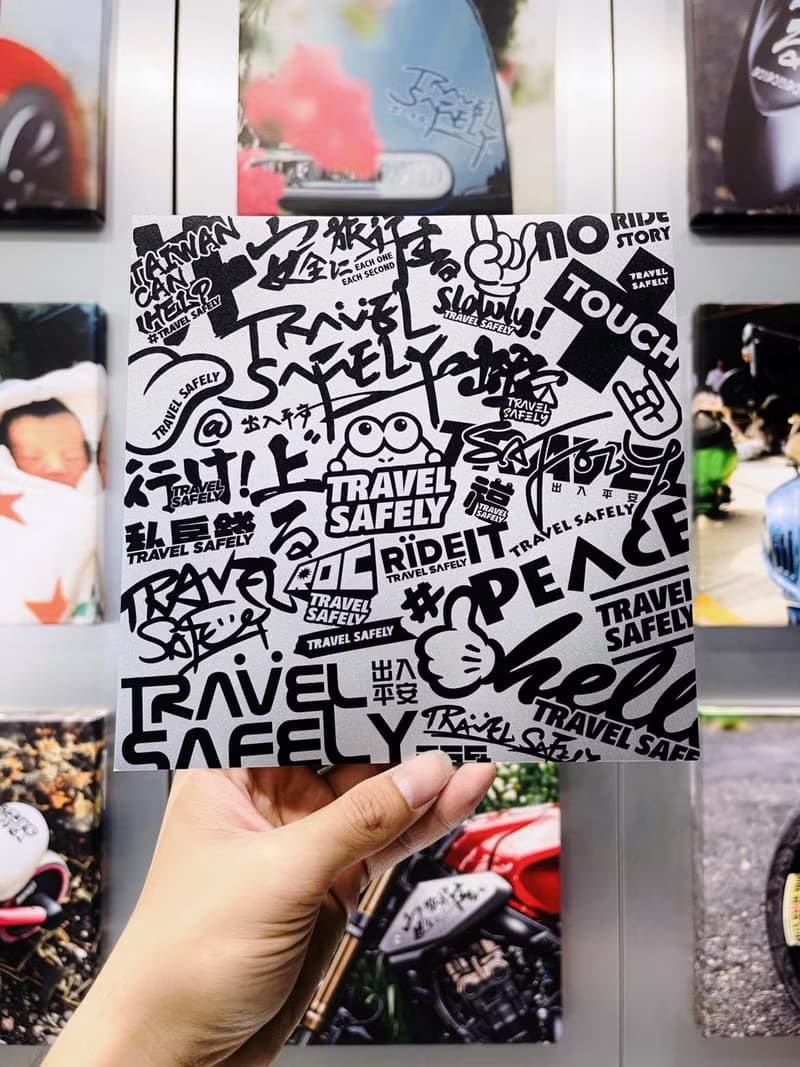 TRAVEL
SAFELY
TAIWAN
CAN
HELP
#TRAVEL SAFELY
安全に
旅行する
EACH ONE
EACH SECOND
slowly!
TRAVEL SAFELY
NO
RIDE
STORY
TRAVEL
SAFELY
TOUCH
TRÄVEL
SAFELY
TRAVEL SAFELY
@
出入平安
TRAVEL
SAFELY
行け!
TRAVEL
SAFELY
上る
TRAVEL
SAFELY
出入平安
TRAVEL
SAFELY
TRAVEL SAFELY
TRAVEL SAFELY
RÏDEIT
TRAVEL SAFELY
ROC
TRAVEL
SAFELY
TRAVEL
SAFELY
#PEACE
TRAVEL
SAFELY
TRAVEL SAFELY
hello
TRAVEL SAFELY
TRÄVEL
SAFELY
出入
平安
TRAVEL SAFELY